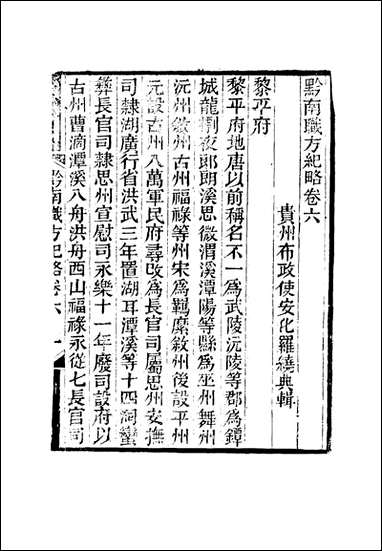 黔南職方紀略卷六
貴州布政使安化羅繞典輯
黎平府
黎平府地唐以前稱名不一爲武陵沅陵等郡爲鐔
城龍剳夜郎朗溪思微渭溪潭陽等縣爲巫州舞州
沅州敘州古州福祿等州宋爲羈縻敘州後設平州
元設古州八萬軍民府尋改爲長官司屬思州安撫
司隸湖廣行省洪武三年置湖耳潭溪等十四洞蠻
彝長官司隸思州宣慰司永樂十一年廢司設府以
古州曹滴潭溪八舟洪舟西山福祿永從七長官司
黔南職方紀略卷六 一